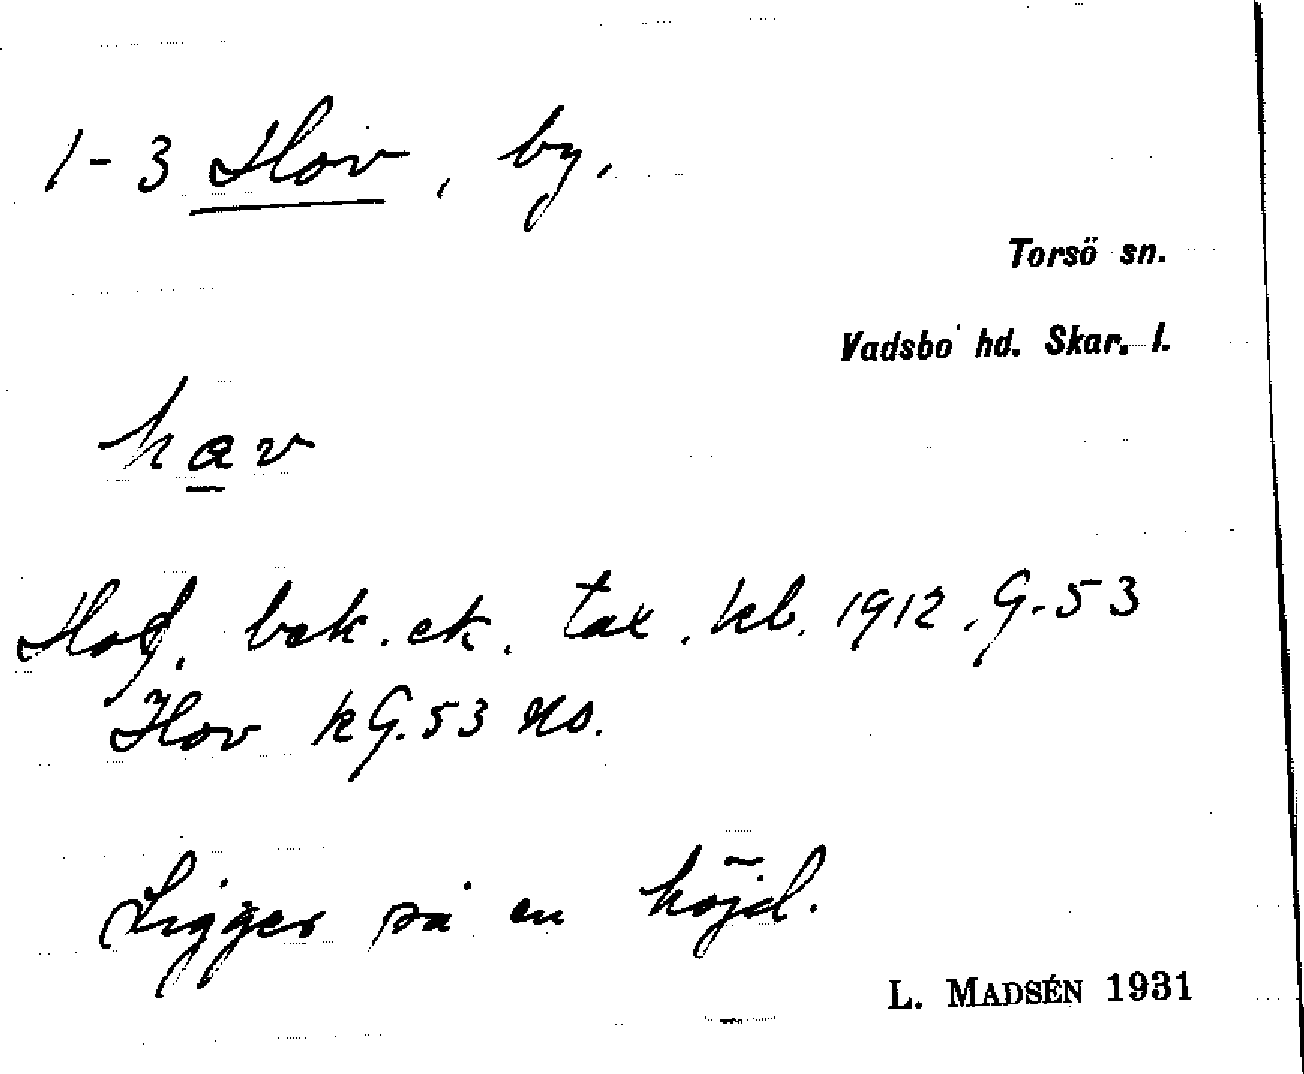 1-3 Hov, by.
Torsö sn.
Vadsbo hd. Skar. l.
hav
Hof. bek. ek. tax. kb. 1912. G. 53
Hov k G. 53 Hs.
Ligger på en höjd.
L. MADSÉN 1931